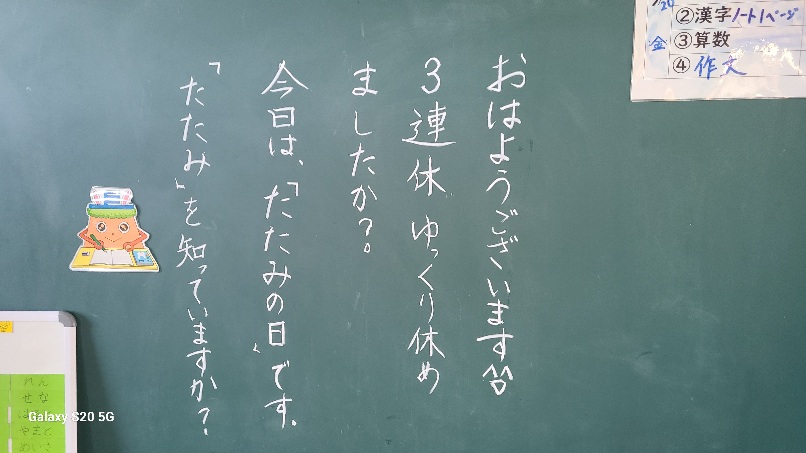 おはようございます
３連休 ゆっくり休め
ましたか？。
今日は、「たたみの日」です。
「たたみ」を知っていますか？
/20
②漢字ノート1ページ
金 ③算数
④作文
れん
せな
Galaxy S20 5G